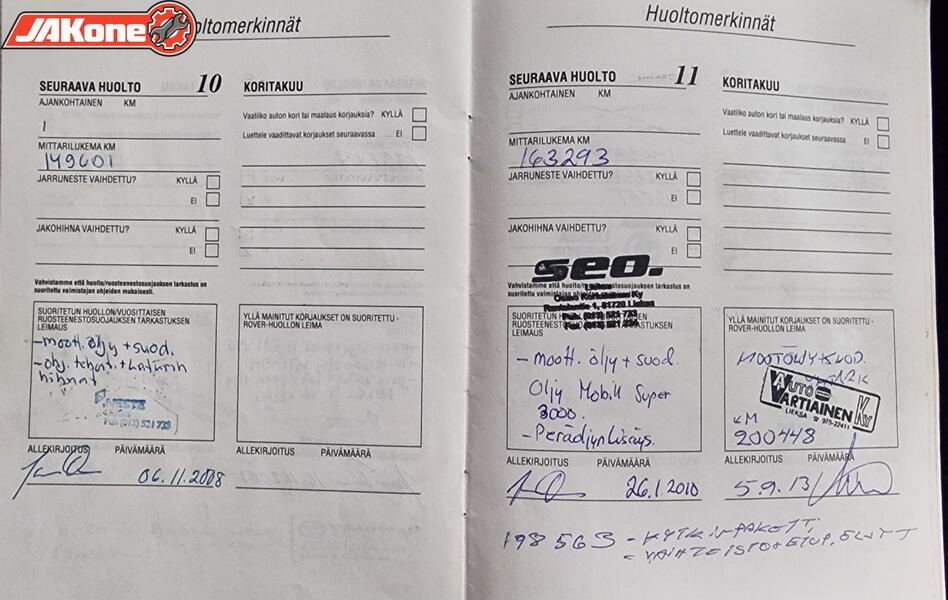 JAKone
Huoltomerkinnät
SEURAAVA HUOLTO 10
AJANKOHTAINEN KM
1
MITTARILUKEMA KM
149601
JARRUNESTE VAIHDETTU? KYLLÄ
EI
JAKOHIHNA VAIHDETTU? KYLLÄ
EI
Vahvistamme että huolto/ruosteenestosuojauksen tarkastus on
suoritettu valmistajan ohjeiden mukaisesti.
SUORITETUN HUOLLON/VUOSITTAISEN
RUOSTEENESTOSUOJAUKSEN TARKASTUKSEN
LEIMAUS
- moott. öljy + suod.
- ohj. tehost. + laturin
hihnat
NESTE
Puh (013) 521 733
ALLEKIRJOITUS PÄIVÄMÄÄRÄ
06.11.2008
KORITAKUU
Vaatiiko auton kori tai maalaus korjauksia? KYLLÄ
Luettele vaadittavat korjaukset seuraavassa EI
YLLÄ MAINITUT KORJAUKSET ON SUORITETTU-
ROVER-HUOLLON LEIMA
ALLEKIRJOITUS PÄIVÄMÄÄRÄ
Huoltomerkinnät
SEURAAVA HUOLTO 11
AJANKOHTAINEN KM
MITTARILUKEMA KM
163293
JARRUNESTE VAIHDETTU? KYLLÄ
EI
JAKOHIHNA VAIHDETTU? KYLLÄ
EI
seo.
Vahvistamme että huolto/ruosteenestosuojauksen tarkastus on
suoritettu valmistajan ohjeiden mukaisesti.
Rantatie 1, 81720 Lieksa
Puh. (013) 521 733
SUORITETUN HUOLLON/VUOSITTAISEN
RUOSTEENESTOSUOJAUKSEN TARKASTUKSEN
LEIMAUS
- moott. öljy + suod.
Öljy Mobil Super
3000.
- Peräöljyn lisäys.
ALLEKIRJOITUS PÄIVÄMÄÄRÄ
26.1.2010
KORITAKUU
Vaatiiko auton kori tai maalaus korjauksia? KYLLÄ
Luettele vaadittavat korjaukset seuraavassa EI
YLLÄ MAINITUT KORJAUKSET ON SUORITETTU-
ROVER-HUOLLON LEIMA
AUTO
VARTIAINEN Ky
LIEKSA ☎ 975-22411
KM
200448
ALLEKIRJOITUS PÄIVÄMÄÄRÄ
5.9.13
198 563 - KYTKINPAKETTI